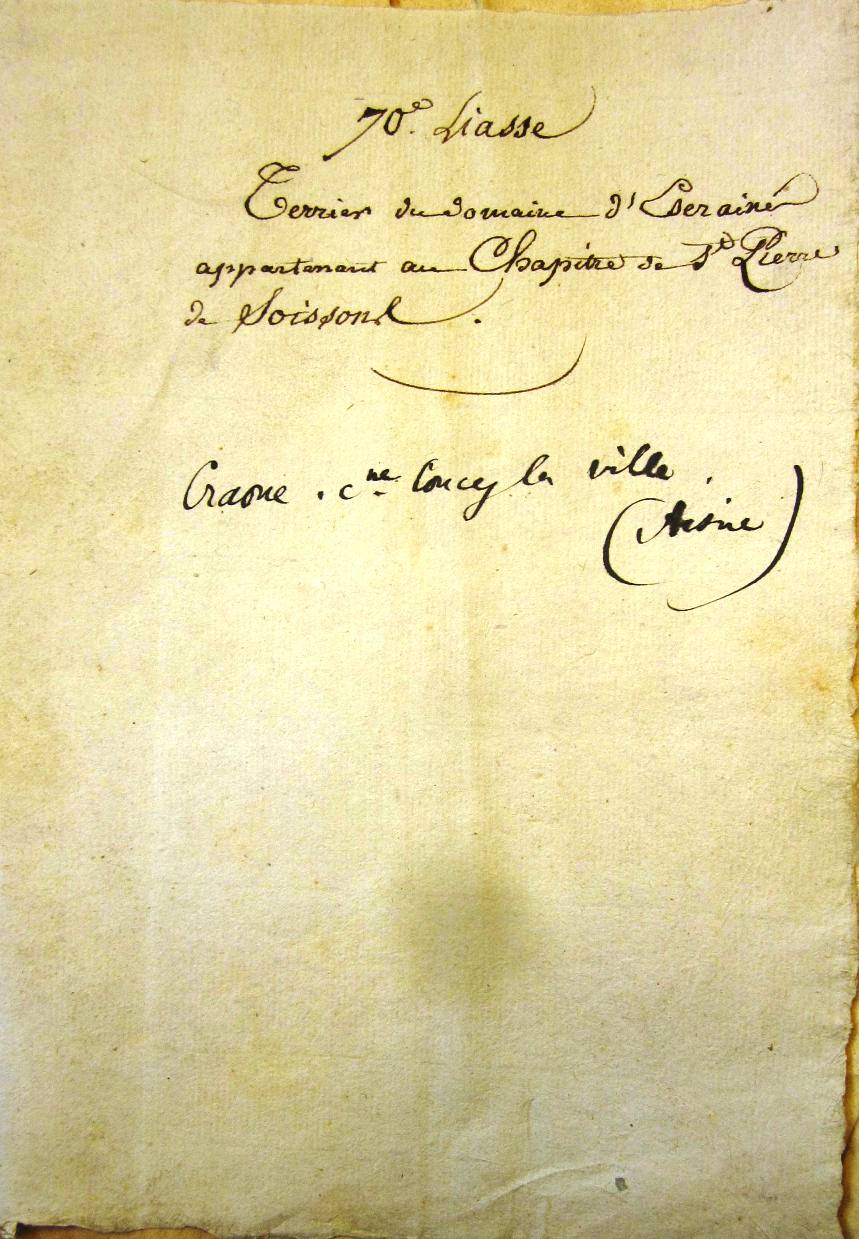 70e. Liasse
Terrier du domaine d'
appartenant au Chapitre de St Pierre
de Soissons.
Craone . cne Coucy la ville .
(Aisne)